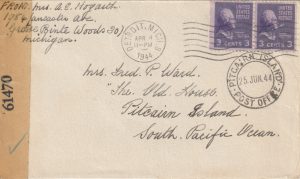 FROM: Mrs. A.C. Hogarth
1984 Lancaster Ave.
Grosse Pointe Woods 30)
Michigan.
DETROIT, MICH.
APR 4
11-PM
1944
3 CENTS 3
3 CENTS 3
PITCAIRN ISLAND
25 JUN. 44
POST OFFICE
61470
Mrs. Fred P. Ward.
"The Old House.
Pitcairn Island.
South Pacific Ocean.